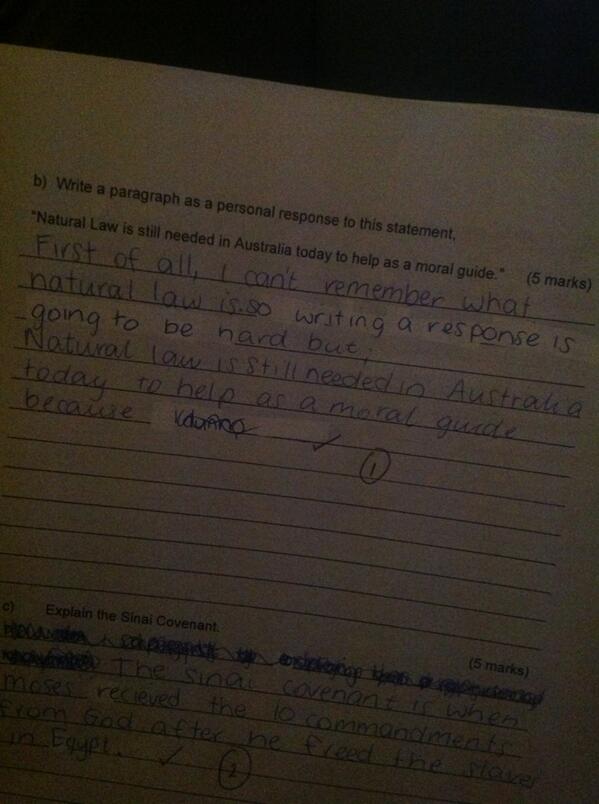 b) Write a paragraph as a personal response to this statement,
"Natural Law is still needed in Australia today to help as a moral guide." (5 marks)
First of all, I can't remember what
natural law is.so writing a response is
going to be hard but;
Natural law is still needed in Australia
today to help as a moral guide
because
1
c) Explain the Sinai Covenant.
(5 marks)
The sinai covenant is when
moses recieved the 10 commandments
from God after he freed the slaves
in Egypt.
2